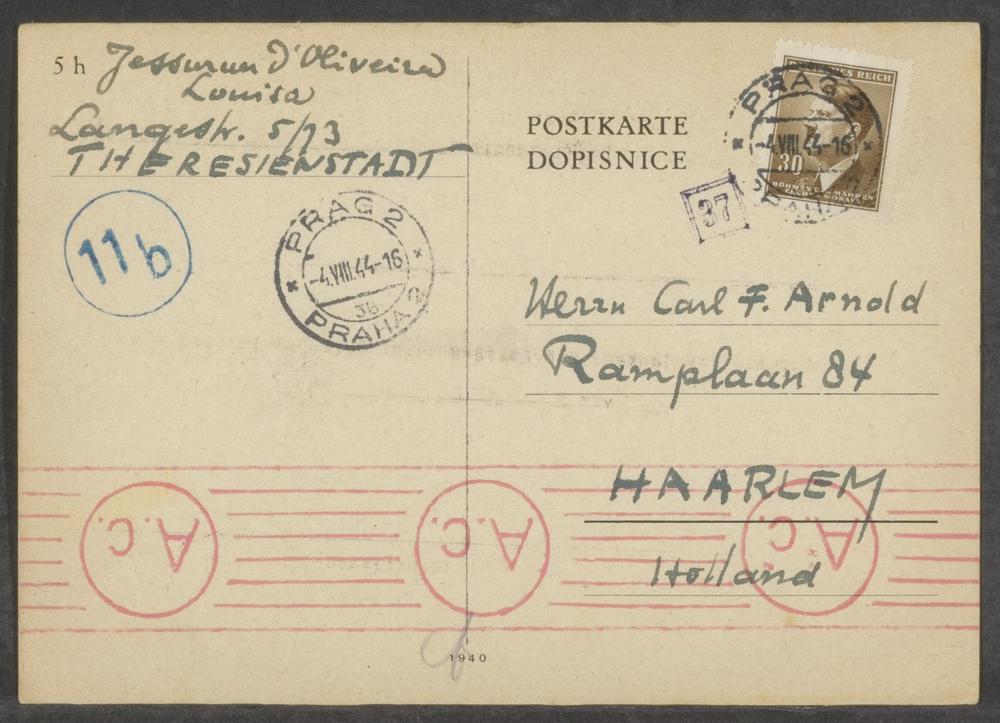 5 h
Jessurun d'Oliveira
Louisa
Langestr. 5/13
THERESIENSTADT
11b
PRAG 2
-4.VIII.44-16
3b
PRAHA 2
POSTKARTE
DOPISNICE
DEUTSCHES REICH
30
BÖHMEN U. MÄHREN
ČECHY A MORAVA
PRAG 2
-4.VIII.44-16
PRAHA
37
Herrn Carl F. Arnold
Ramplaan 84
HAARLEM
Holland
A.C.
A.C.
A.C.
1940